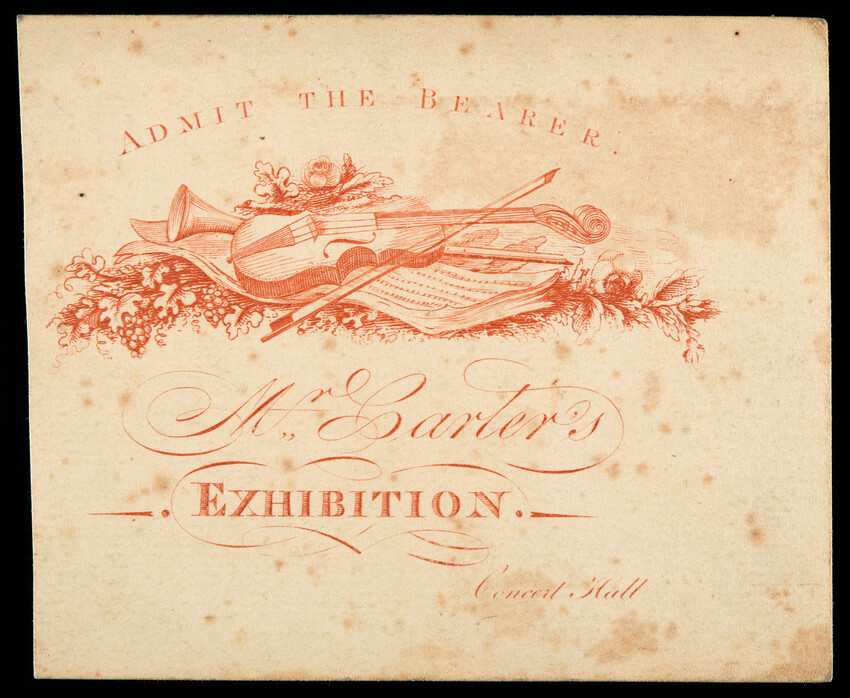 ADMIT THE BEARER.
Mr,, Carter's
. EXHIBITION .
Concert Hall